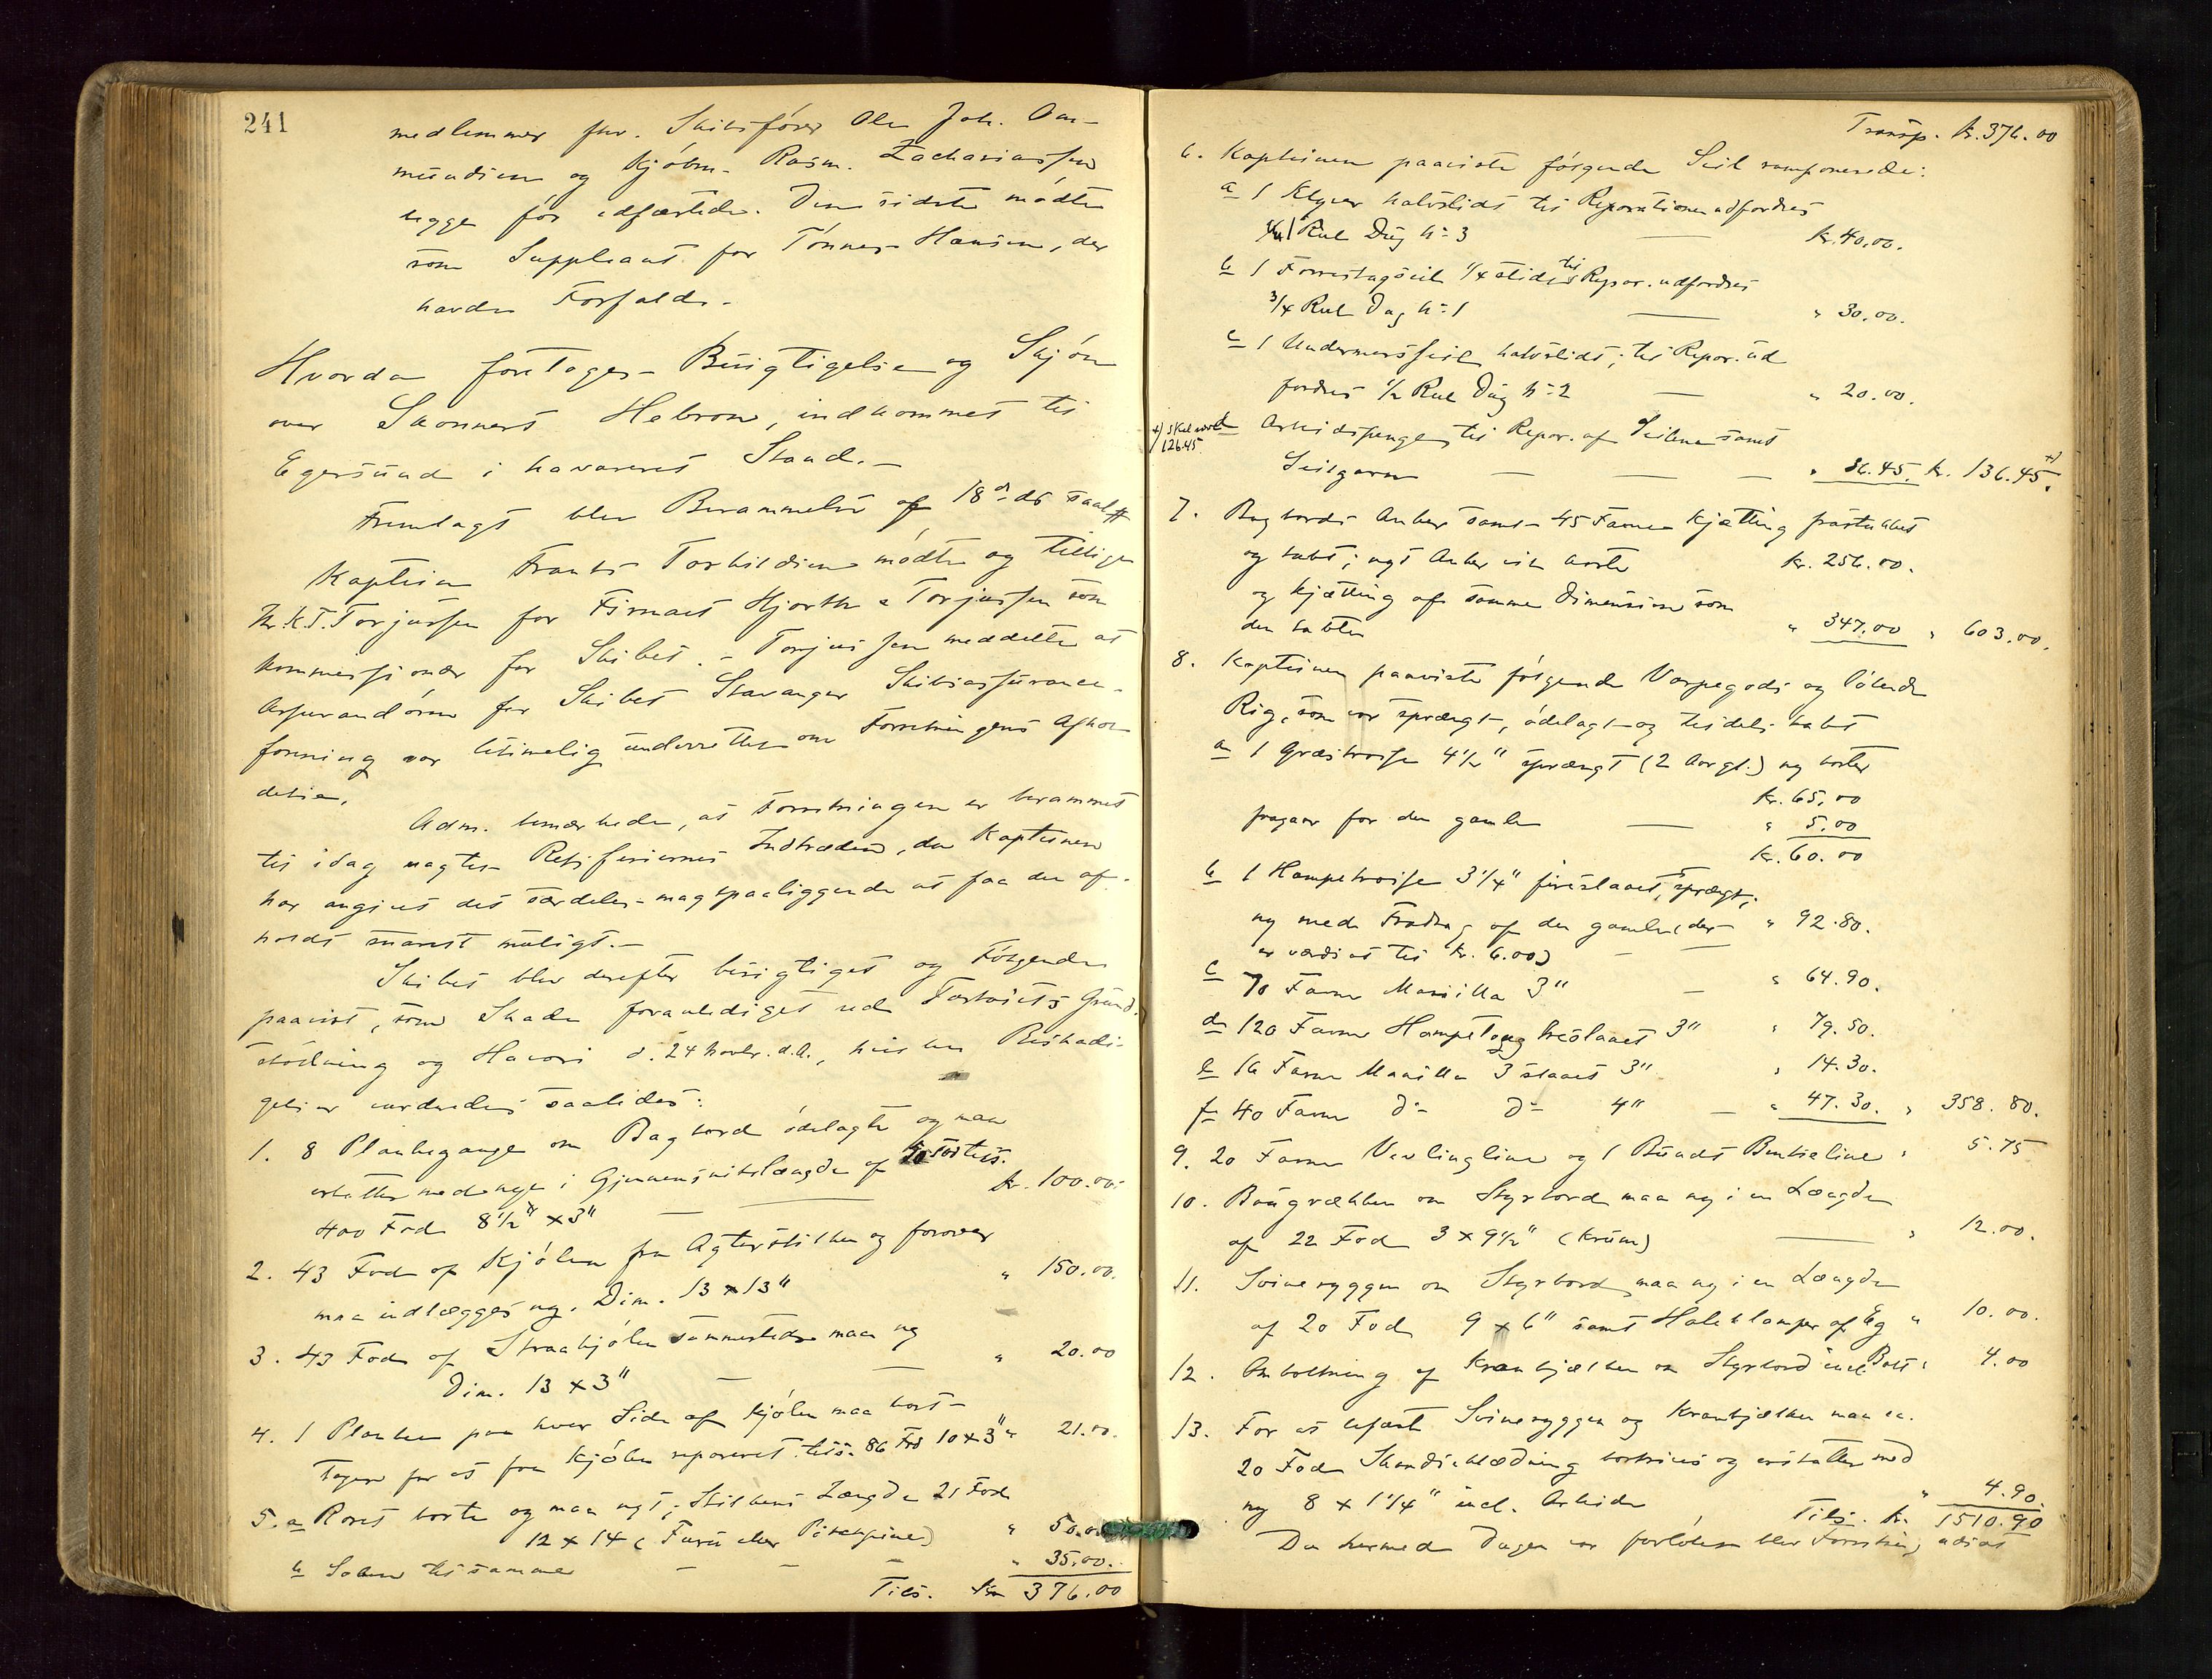 241
medlemmer hr. Skibsfører Ole Joh. Aa-
mundsen og Kjøbm. Rasm. Zachariassen
begge før edfæstede. Den sidste mødte
som Suppleant for Tønnes Hansen, der
havde Forfald. -
Hvorda foretoges Besigtigelse og Skjøn
over Skonnert Hebron, indkommet til
Egersund i havareret Stand. -
Fremlagt blev Berammelse af 18 ds saal.
Kaptein Frants Torkildsen mødte og tillige
Hr. K.T. Torjussen for Firmaet Hjorth & Torjussen som
Kommissionær for Skibet. - Torjussen meddelte at
Assurandøren for Skibet Stavanger Skibsassurance-
forening var betimelig underrettet om Forretningens Afhol-
delse.
Adm. bemærkede, at Forretningen er berammet
til idag uagtet Retsferiernes Indtræden, da Kapteinen
har angivet det særdeles magtpaaliggende at faa den af-
holdt snarest muligt. -
Skibet blev derefter besigtiget og Følgende
paavist, som Skade foranlediget ved Fartøiets Grund-
stødning og Havari d. 24 Novbr. d.A., hvilken Beskadi-
gelse vurderedes saaledes:
1. 8 Plankegange om Bagbord ødelagte og maa
erstattes med nye i Gjennemsnitslængde af 50 Fod tils.
400 Fod 8 1/2" x 3" kr. 100.00.
2. 43 Fod af Kjølen fra Agterstilken og forover
maa indlægges ny. Dim. 13 x 13" " 150.00.
3. 43 Fod af Straakjølen sammesteds maa ny
Dim. 13 x 3" " 20.00
4. 1 Planke paa hver Side af Kjølen maa bort-
tages for at faa Kjølen repareret tils. 86 Fod 10 x 3" " 21.00.
5. a Roret borte og maa nyt, Stilkens Længde 21 Fod
12 x 14 (Furu eller Pitchpine) " 50.00
b Laber til samme " 35.00.
Tils. Kr 376.00
Transp. Kr. 376.00
6. Kapteinen paaviste følgende Seil ramponerede:
a 1 Klyver halvslidt til Reparationen udfordres
1 Rul Dug No 3 Kr. 40.00.
b 1 Forrestagseil 1/4 slidt til Repar. udfordres
3/4 Rul Dug No 1 " 30.00.
c 1 Undermersseil halvslidt; til Repar. ud
fordres 1/2 Rul Dug No 2 " 20.00.
x) skal være
126.45
d Arbeidspenge til Repar. af Seilene samt
Seilgarn " 36.45. Kr. 136.45 x)
7. Bagbords Anker samt 45 Favne Kjætting frastukket
og tabt; nyt Anker ist. borte Kr. 256.00.
og Kjætting af samme Dimension som
den tabte " 347.00 " 603.00.
8. Kapteinen paaviste følgende Varpegods og løbende
Rig, som var sprængt, ødelagt og tildels tabt
a 1 Græstrosse 4 1/2" sprængt (2 Aar gl.) ny koster
Kr. 65.00
fragaar for den gamle " 5.00
Kr. 60.00
b 1 Hampetrosse 3 1/4" fireslaaet, sprængt,
ny med Fradrag af den gamle (der " 92.80.
er værdsat til Kr. 6.00)
c 70 Favne Manilla 3" " 64.90.
d 120 Favne Hampetoug treslaaet 3" " 79.50.
e 16 Favne Manilla 3 slaaet 3" " 14.30.
f 40 Favne do do 4" " 47.30. " 358.80.
9. 20 Favne Vevlingline og 1 Bundt Bentseline " 5.75
10. Bougrækken om Styrbord maa ny i en Længde
af 22 Fod 3 x 9 1/2" (Krum) " 12.00.
11. Svineryggen om Styrbord maa ny i en Længde
af 20 Fod 9 x 6" samt Haleklamper af Eg " 10.00.
12. Ombolting af Kranbjælken om Styrbord incl. Bolt " 4.00
13. For at befæste Svineryggen og Kranbjælken maa ca.
20 Fod Skandseklædning borthives og erstattes med
ny 8 x 1 1/4" incl. Arbeide " 4.90.
Tils. Kr. 1510.90
Da hermed Dagen var forløben blev Forretning udsat